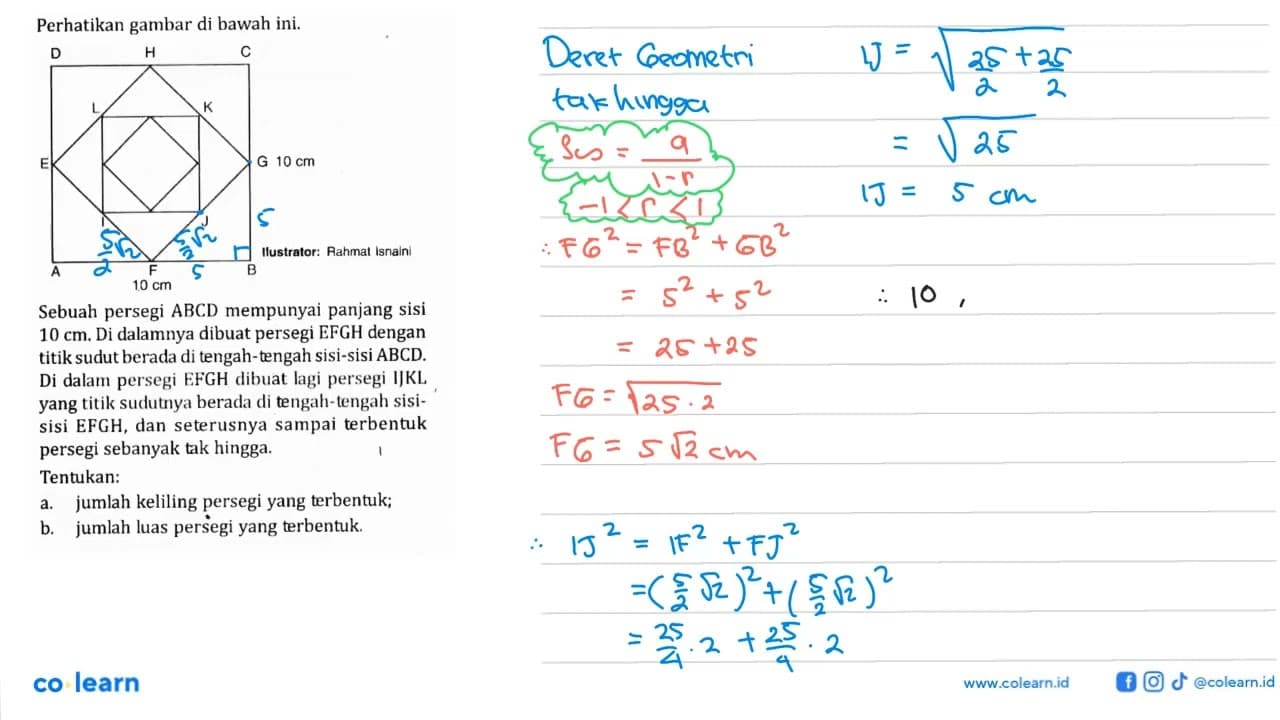 Perhatikan gambar di bawah ini.
D H C
L K
E G 10 cm
I J 5
5/2 √2 5/2 √2
Ilustrator: Rahmat Isnaini
A F 5 B
10 cm
Sebuah persegi ABCD mempunyai panjang sisi
10 cm. Di dalamnya dibuat persegi EFGH dengan
titik sudut berada di tengah-tengah sisi-sisi ABCD.
Di dalam persegi EFGH dibuat lagi persegi IJKL
yang titik sudutnya berada di tengah-tengah sisi-
sisi EFGH, dan seterusnya sampai terbentuk
persegi sebanyak tak hingga.
Tentukan:
a. jumlah keliling persegi yang terbentuk;
b. jumlah luas persegi yang terbentuk.
Deret Geometri
tak hingga
S∞ = a/(1-r)
-1 < r < 1
∴ FG² = FB² + GB²
= 5² + 5²
= 25 + 25
FG = √(25 . 2)
FG = 5√2 cm
∴ IJ² = IF² + FJ²
= (5/2 √2)² + (5/2 √2)²
= 25/4 . 2 + 25/4 . 2
IJ = √(25/2 + 25/2)
= √25
IJ = 5 cm
∴ 10 ,
co learn
www.colearn.id @colearn.id